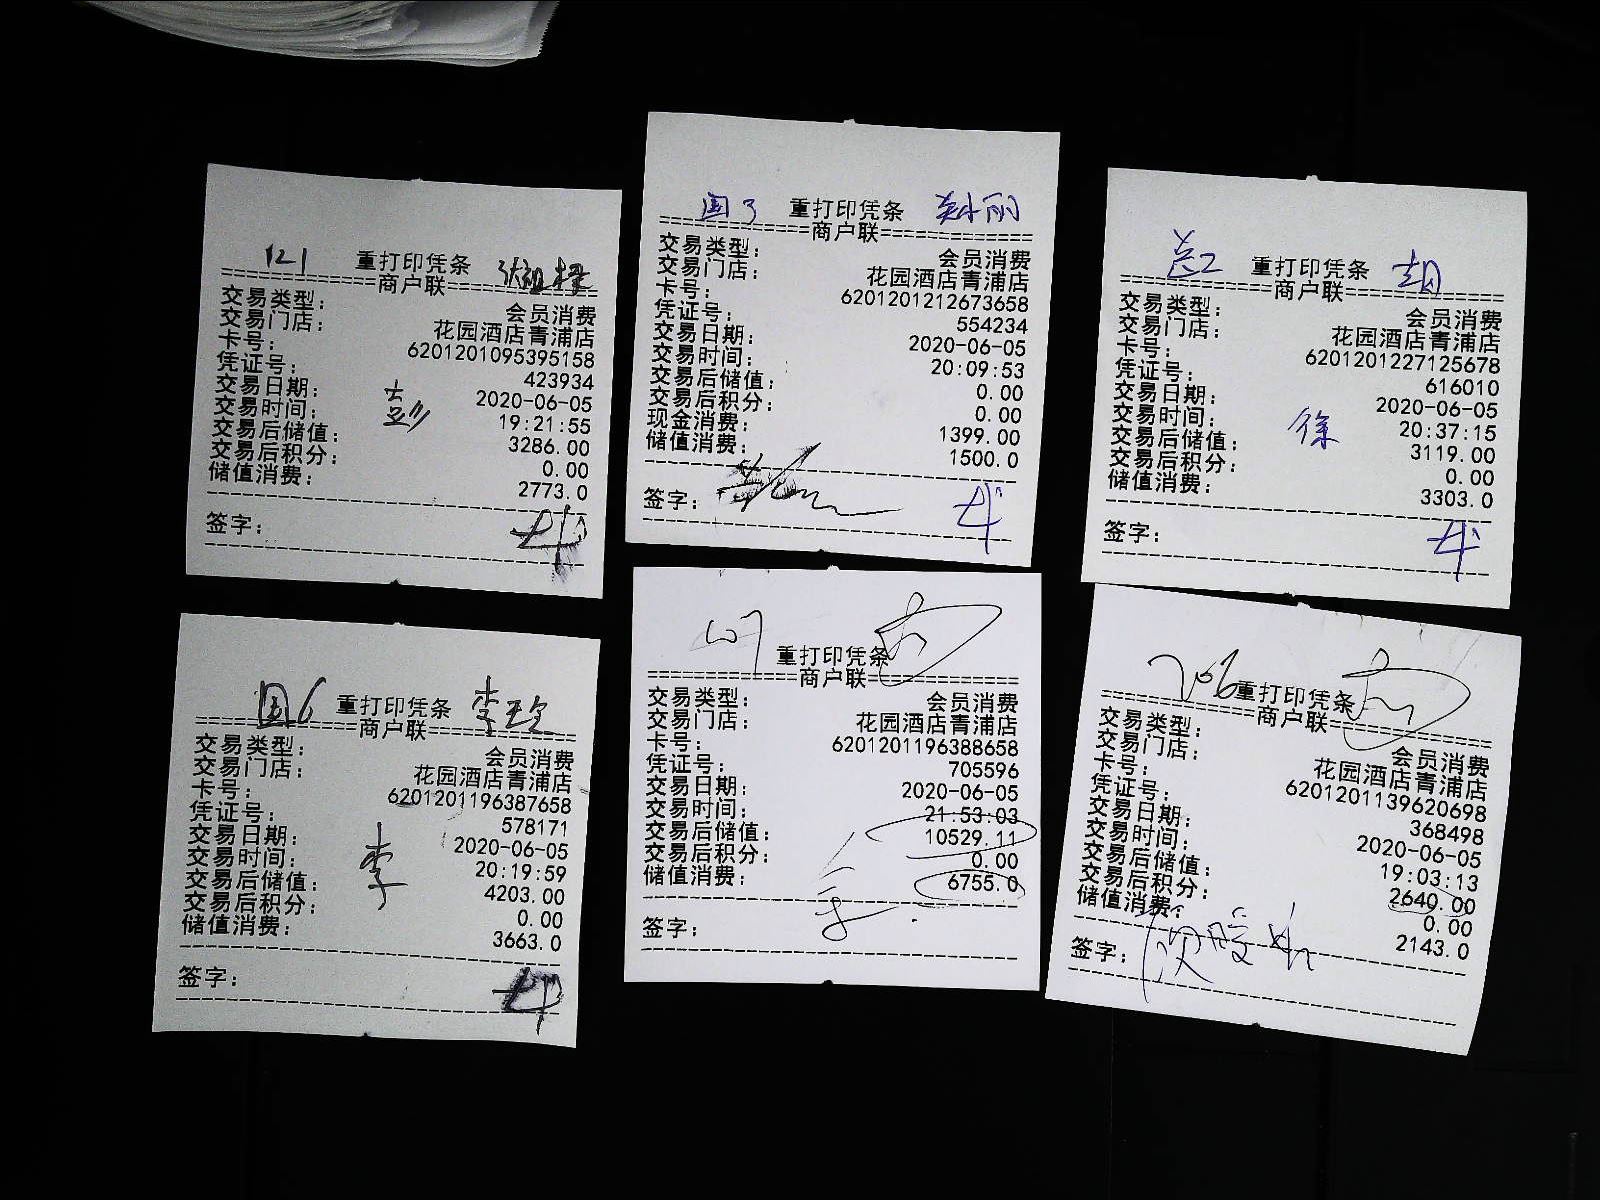 121 重打印凭条
商户联
交易类型: 会员消费
交易门店: 花园酒店青浦店
卡号: 6201201095395158
凭证号: 423934
交易日期: 2020-06-05
交易时间: 19:21:55
交易后储值: 3286.00
交易后积分: 0.00
储值消费: 2773.0
签字:
国3 重打印凭条
商户联
交易类型: 会员消费
交易门店: 花园酒店青浦店
卡号: 6201201212673658
凭证号: 554234
交易日期: 2020-06-05
交易时间: 20:09:53
交易后储值: 0.00
交易后积分: 0.00
现金消费: 1399.00
储值消费: 1500.0
签字:
重打印凭条
商户联
交易类型: 会员消费
交易门店: 花园酒店青浦店
卡号: 6201201227125678
凭证号: 616010
交易日期: 2020-06-05
交易时间: 20:37:15
徐
交易后储值: 3119.00
交易后积分: 0.00
储值消费: 3303.0
签字:
国6 重打印凭条
商户联
交易类型: 会员消费
交易门店: 花园酒店青浦店
卡号: 6201201196387658
凭证号: 578171
交易日期: 2020-06-05
李
交易时间: 20:19:59
交易后储值: 4203.00
交易后积分: 0.00
储值消费: 3663.0
签字:
重打印凭条
商户联
交易类型: 会员消费
交易门店: 花园酒店青浦店
卡号: 6201201196388658
凭证号: 705596
交易日期: 2020-06-05
交易时间: 21:53:03
交易后储值: 10529.11
交易后积分: 0.00
储值消费: 6755.0
签字:
206 重打印凭条
商户联
交易类型: 会员消费
交易门店: 花园酒店青浦店
卡号: 6201201139620698
凭证号: 368498
交易日期: 2020-06-05
交易时间: 19:03:13
交易后储值: 2640.00
交易后积分: 0.00
储值消费: 2143.0
签字: